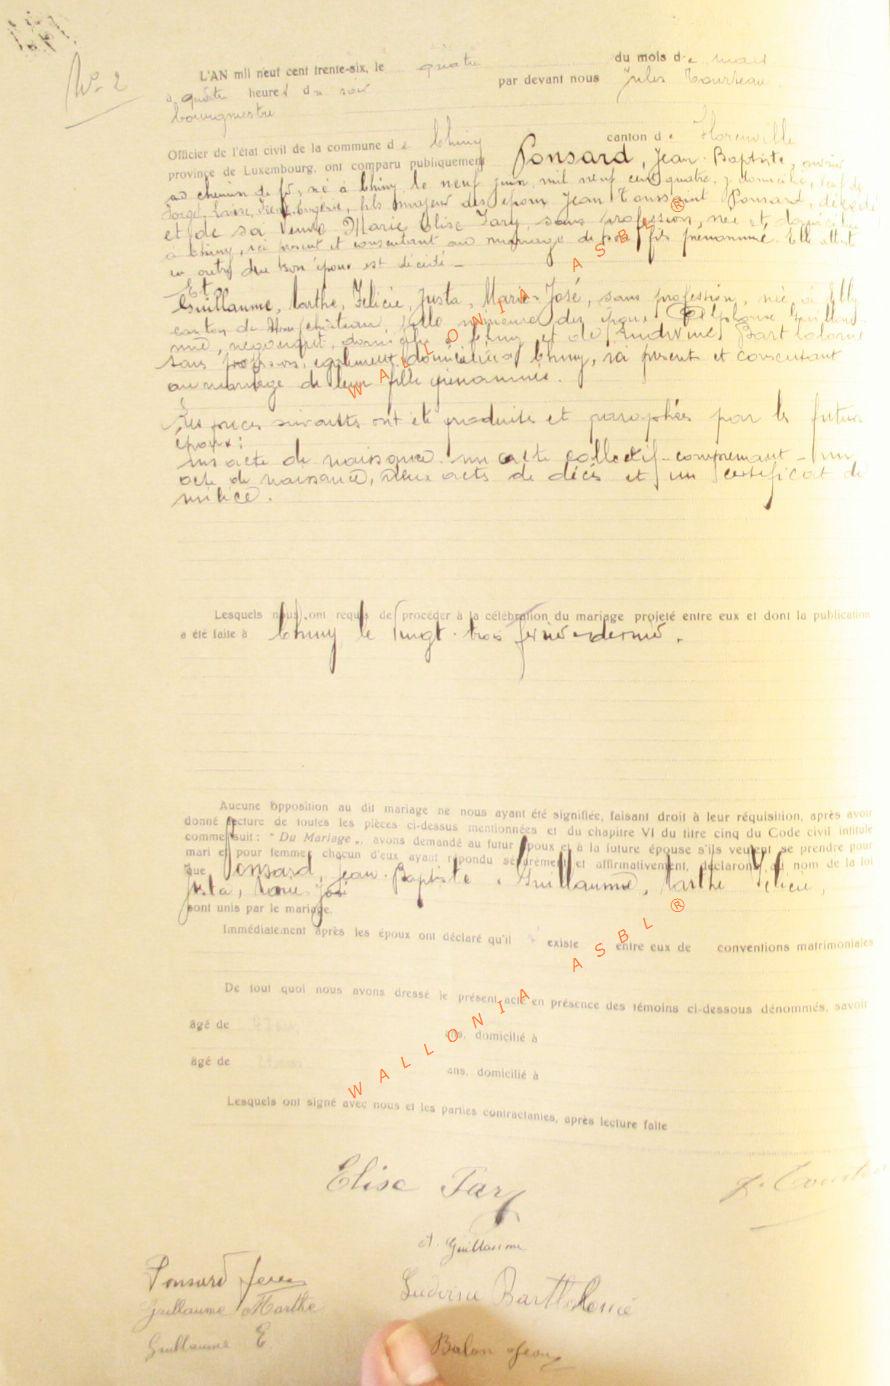 N° 2
L'AN mil neuf cent trente-six, le quatre du mois de mars
à quatre heures du soir par devant nous Jules
bourgmestre
Officier de l'état civil de la commune de Chiny canton de Florenville
province de Luxembourg, ont comparu publiquement Ponsard, Jean-Baptiste, ouvrier
au chemin de fer, né à Chiny le neuf juin mil neuf cent quatre, y domicilié,
fils majeur des époux Jean Toussaint Ponsard, décédé
et de sa veuve Marie Elise Tary, sans profession, née et domiciliée
à Chiny, ici présent et consentant au mariage de son fils prénommé. Elle
en outre que son époux est décédé
Et
Guillaume, Marthe, Félicie, Justa, Marie-José, sans profession, née à
canton de Neufchâteau, fille mineure des époux Guillaume
domiciliés à Chiny et de Ludivine Bartholomé
sans profession, également domiciliée à Chiny, ici présent et consentant
au mariage de leur fille prénommée.
Les pièces suivantes ont été produites et paraphées par les futurs
époux:
un acte de naissance. un acte collectif comprenant un
acte de naissance, deux actes de décès et un certificat de
milice.
Lesquels nous ont requis de procéder à la célébration du mariage projeté entre eux et dont la publication
a été faite à Chiny le vingt-trois février dernier.
Aucune opposition au dit mariage ne nous ayant été signifiée, faisant droit à leur réquisition, après avoir
donné lecture de toutes les pièces ci-dessus mentionnées et du chapitre VI du titre cinq du Code civil intitulé
comme suit : " Du Mariage ", avons demandé au futur époux et à la future épouse s'ils veulent se prendre pour
mari et pour femme, chacun d'eux ayant répondu séparément et affirmativement, déclarons, au nom de la loi
que Ponsard, Jean-Baptiste & Guillaume, Marthe Félicie,
Justa, Marie José
sont unis par le mariage.
Immédiatement après les époux ont déclaré qu'il existe entre eux de conventions matrimoniales
De tout quoi nous avons dressé le présent acte en présence des témoins ci-dessous dénommés, savoir
âgé de ans, domicilié à
âgé de ans, domicilié à
Lesquels ont signé avec nous et les parties contractantes, après lecture faite
Elise Tary
A. Guillaume
Ponsard Jean
Ludivine Bartholomé
Guillaume Marthe
Guillaume E
Balon Jean
WALLONIA ASBL ®
WALLONIA ASBL ®